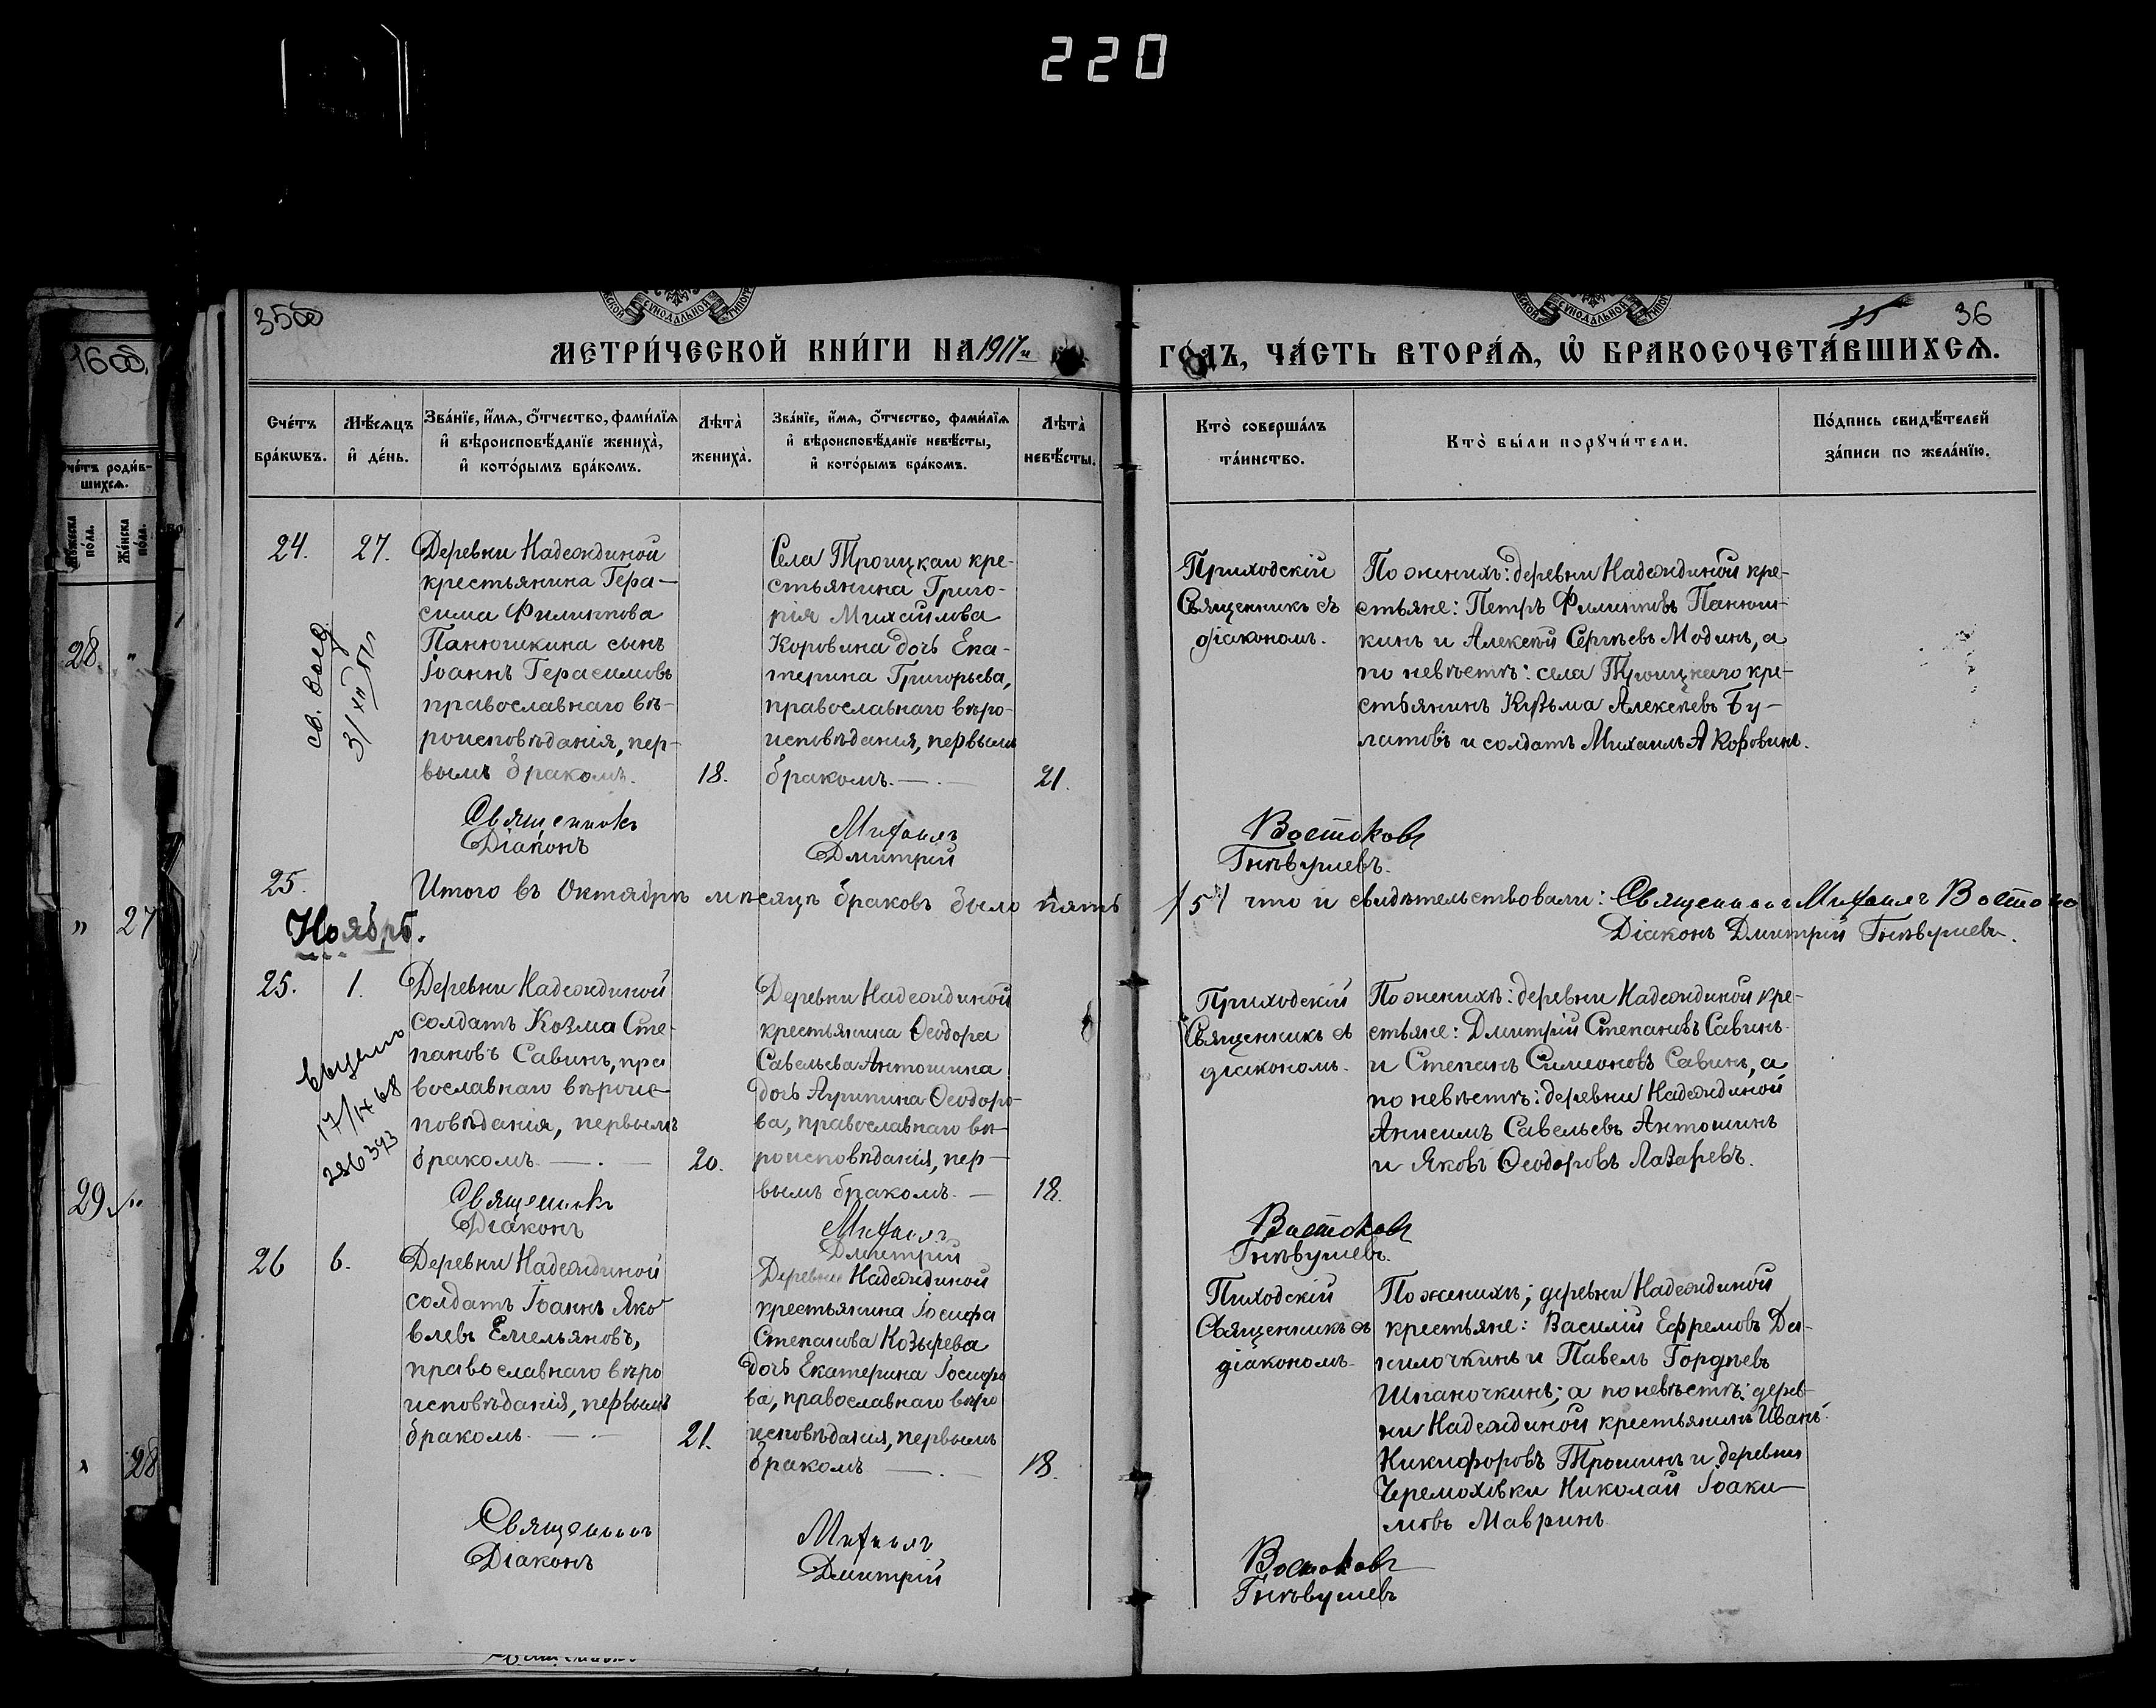 220
35об
36
МЕТРИ́ЧЕСКОЙ КНИ́ГИ НА 1917й
ГОДЪ, ЧА́СТЬ ВТОРА́Ѧ, Ѽ БРАКОСОЧЕТА́ВШИХСѦ.
Сче́тъ бра́кωвъ.
Мѣ́сѧцъ и҆ де́нь.
Зва́нїе, и҆́мѧ, ѻ҆́тчество, фами́лїѧ и҆ вѣроисповѣ́данїе жениха̀, и҆ кото́рымъ бра́комъ.
Лѣта̀ жениха̀.
Зва́нїе, и҆́мѧ, ѻ҆́тчество, фами́лїѧ и҆ вѣроисповѣ́данїе невѣ́сты, и҆ кото́рымъ бра́комъ.
Лѣта̀ невѣ́сты.
Кто̀ соверша́лъ та́инство.
Кто̀ бы́ли порꙋчи́тели.
По́дпись свидѣ́телей за́писи по жела́нїю.
24.
27.
Деревни Надеждиной
крестьянина Гера-
сима Филиппова
Панюшкина сынъ
Іоаннъ Герасимовъ
православнаго вѣ-
роисповѣданія, пер-
вымъ бракомъ.
18.
Села Троицкаго кре-
стьянина Григо-
рія Михайлова
Коровина дочь Ека-
терина Григорьева,
православнаго вѣро-
исповѣданія, первымъ
бракомъ.
21.
Приходскій
Священникъ съ
діакономъ.
По женихѣ: деревни Надеждиной кре-
стьяне: Петръ Филипповъ Панюш-
кинъ и Алексѣй Сергѣевъ Модинъ, а
по невѣстѣ: села Троицкаго кре-
стьянинъ Кузьма Алексѣевъ Бу-
латовъ и солдатъ Михаилъ А Коровинъ.
31/XII
Священникъ Михаилъ Востоковъ
Діаконъ Дмитрій Гнѣвушевъ.
25.
Итого въ Октябрѣ мѣсяцѣ браковъ было пять /5/ что и свидѣтельствовали: Священникъ Михаилъ Востоко
Діаконъ Дмитрій Гнѣвушевъ.
Ноябрь.
25.
1.
Деревни Надеждиной
солдатъ Козма Сте-
пановъ Савинъ, пра
вославнаго вѣроис-
повѣданія, первымъ
бракомъ.
20.
Деревни Надеждиной
крестьянина Ѳеодора
Савельева Антошина
дочь Агрипина Ѳеодоро-
ва, православнаго вѣ-
роисповѣданія, пер-
вымъ бракомъ.
18.
Приходскій
Священникъ съ
діакономъ.
По женихѣ: деревни Надеждиной кре-
стьяне: Дмитрій Степановъ Савинъ
и Степанъ Симоновъ Савинъ, а
по невѣстѣ: деревни Надеждиной
Анисимъ Савельевъ Антошинъ
и Яковъ Ѳеодоровъ Лазаревъ.
17/IX 68
286393
Священникъ Михаилъ Востоковъ
Діаконъ Дмитрій Гнѣвушевъ.
26
6.
Деревни Надеждиной
солдатъ Іоаннъ Яко
влевъ Емельяновъ,
православнаго вѣро
исповѣданія, первымъ
бракомъ.
21.
Деревни Надеждиной
крестьянина Іосифа
Степанова Козырева
дочь Екатерина Іосифо
ва, православнаго вѣро
исповѣданія, первымъ
бракомъ
18.
Пиходскій
Священникъ съ
діакономъ.
По женихѣ; деревни Надеждиной
крестьяне: Василій Ефремовъ Да-
нилочкинъ и Павелъ Гордѣевъ
Шпаночкинъ; а по невѣстѣ: дерев-
ни Надеждиной крестьянинъ Иванъ
Никифоровъ Трошинъ и деревни
Черемховки Николай Іоаки-
мовъ Мавринъ
Священникъ Михаилъ Востоковъ
Діаконъ Дмитрій Гнѣвушевъ
28.
27
29
28